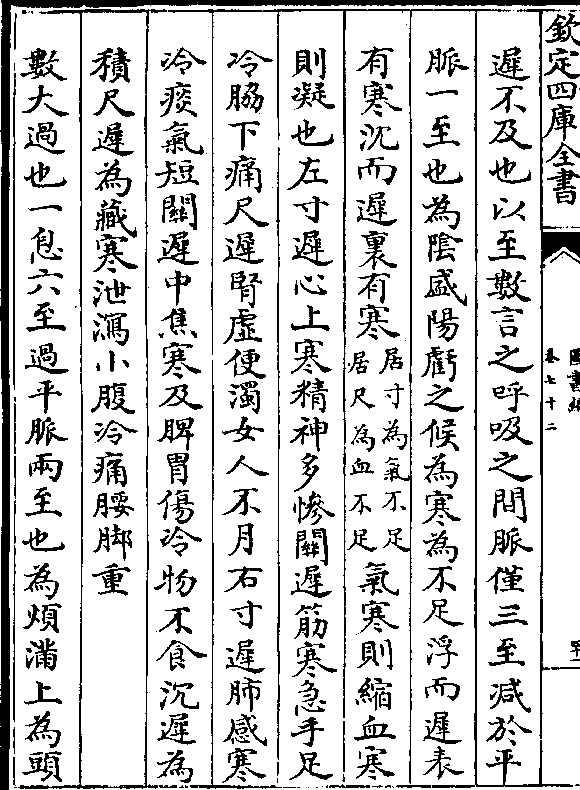 欽定四庫全書
圖書編
卷七十二
遲不及也以至數言之呼吸之間脈僅三至減於平
脈一至也為陰盛陽虧之候為寒為不足浮而遲表
有寒沉而遲裏有寒居寸為氣不足居尺為血不足氣寒則縮血寒
則凝也左寸遲心上寒精神多慘關遲筋寒急手足
冷脇下痛尺遲腎虛便濁女人不月右寸遲肺感寒
冷痰氣短關遲中焦寒及脾胃傷冷物不食沉遲為
積尺遲為藏寒泄瀉小腹冷痛腰脚重
數大過也一息六至過平脈兩至也為煩滿上為頭